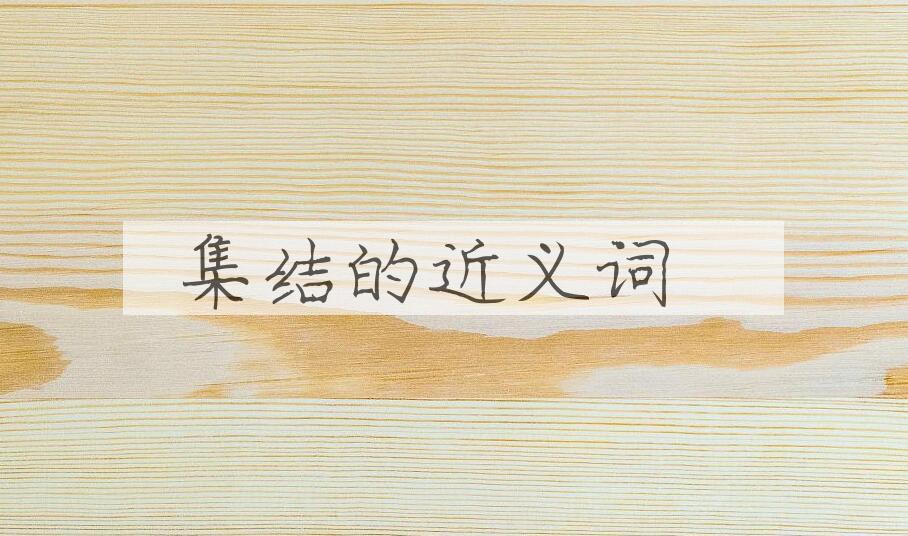 集结的近义词